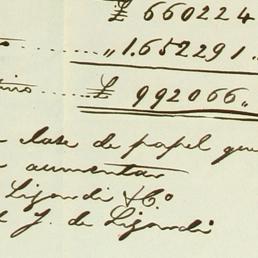 £ 660224
„ 1.652291 „
£ 992066 „
clase de papel que
aumentar
Lizondi & Cº
J. de Lizondi